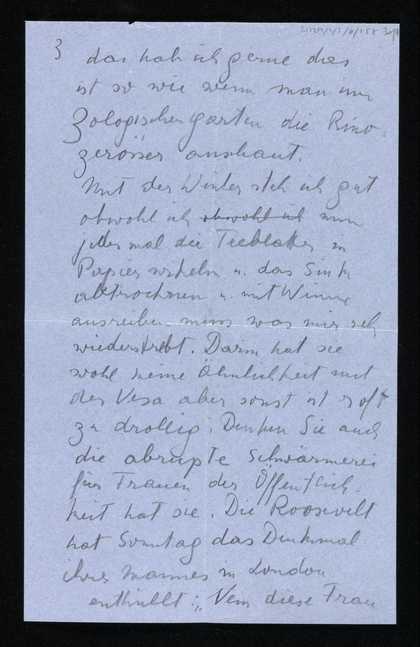 3 das hab ich gerne das
ist so wie wenn man im
Zologischengarten die Rino-
zerösser anschaut.
Mit der Winter steh ich gut
obwohl ich obwohl ich nun
jedes mal die Teeblätter in
Papier wikeln u. das Sink
abtrocknen u. mit
ausreiben muss was mir sehr
wiederstrebt. Darin hat sie
wohl keine Ähnlichkeit mit
der Visa aber sonst ist es oft
zu drollig. Denken Sie auch
die abrupte Schwärmerei
für Frauen der Öffentlich-
keit hat sie. Die Roosevelt
hat Sonntag das Denkmal
ihres Mannes in London
enthüllt: „Wenn diese Frau